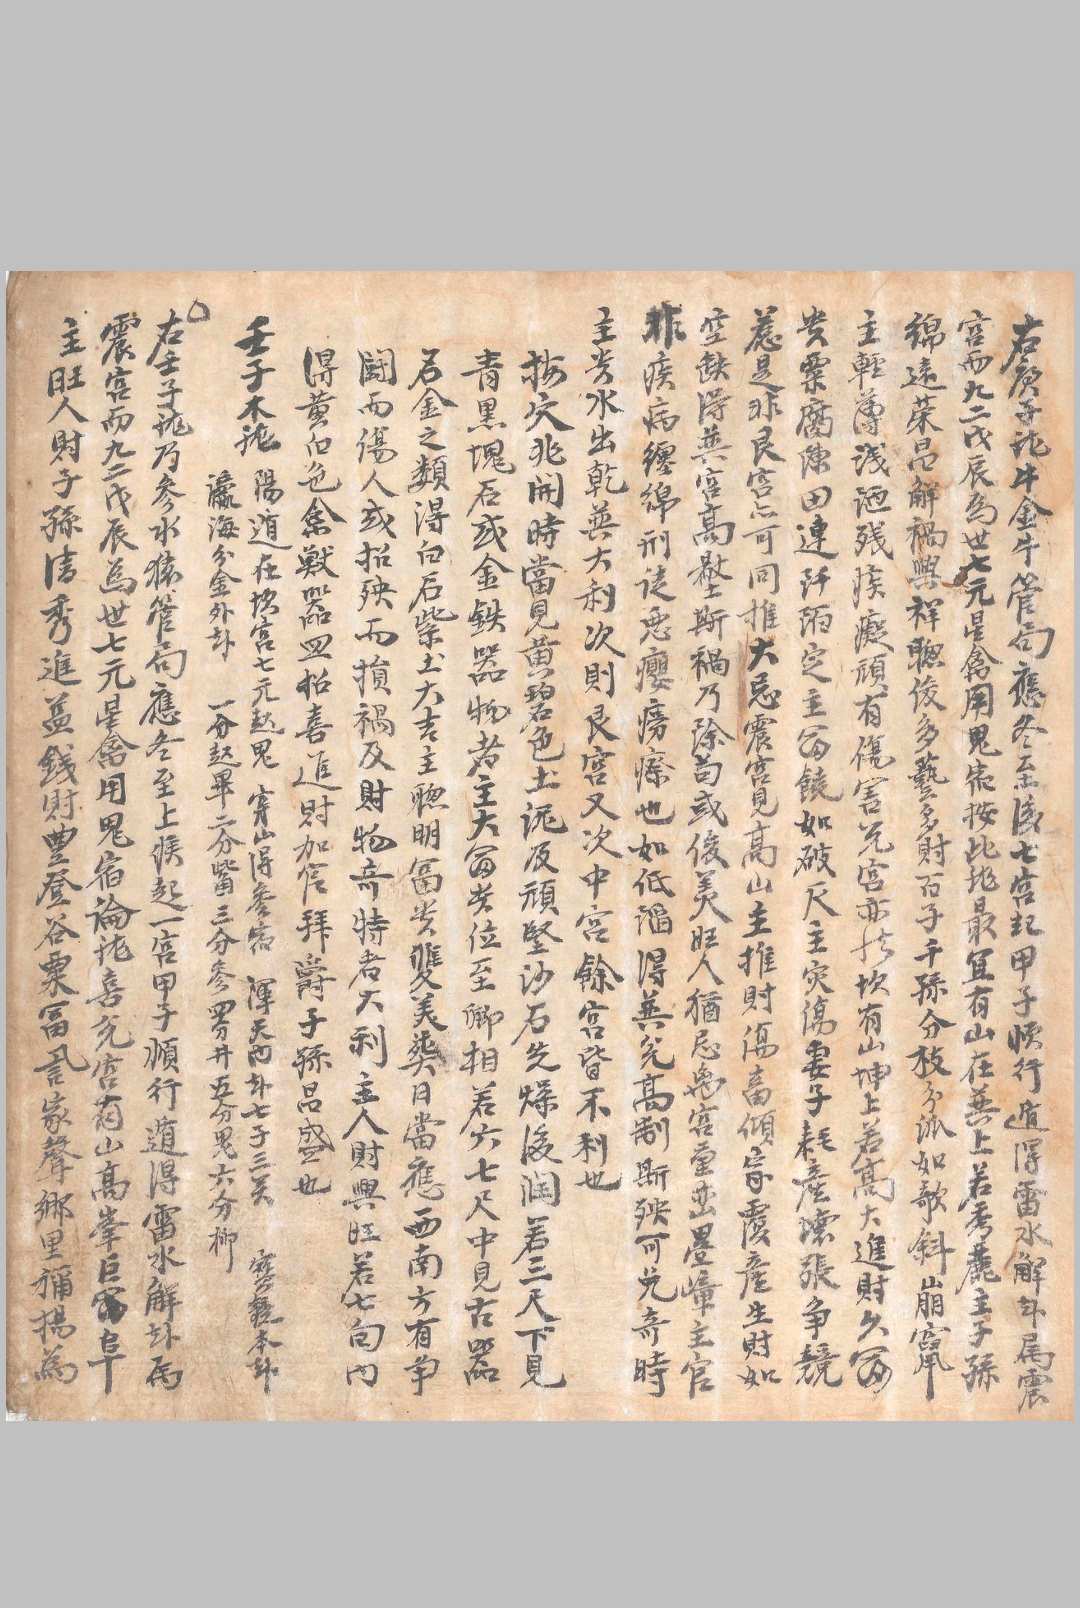 右庚子龍牛金牛管局應冬至後七宮起甲子順行遁得雷水解卦屬震
宮而九二戊辰為世七元星禽用鬼宿按此龍最宜有山在巽上若秀麗主子孫
綿遠榮昌解禍興祥聰俊多藝多財百子千孫分枝分派如欹斜崩竄
主輕薄淺陋殘疾癡頑有傷害兌宮亦忌坎有山坤上若高大進財久富
貴粟腐陳田連阡陌定主富饒如破尺主災傷妻子耗産壞張争競
惹是非艮宮亦可同推大忌震宮見高山主推財傷畜傾家覆産生財如
空缺得巽宮高壓斯禍乃除苟或俊美旺人猶忌兔宮重巒疊嶂主官
非疾病纏綿刑徒惡癭癆瘵也如低溜得巽兌高制斯殃可免奇時
主貴水出乾巽大利次則艮宮又次中宮餘宮皆不利也
按穴兆開時當見黃碧色土泥及頑堅沙石先燥後潤若三尺下見
青黑塊石或金鉄器物者主大富貴位至卿相若六七尺中見古器
石金之類得白石紫土大吉主聰明富貴雙美葬日當應西南方有争
鬪而傷人或招殃而損禍及財物奇特者大利主人財興旺若七旬內
得黃白色禽獸器皿招喜進財加官拜爵子孫昌盛也
壬子木龍 陽遁在坎宮七元起鬼 穿山得參宿 渾天丙卦七子三 寶鏡本卦
瀛海分金外卦 一分起畢二分觜三分參四分井五分鬼六分柳
右壬子龍乃參水猿管局應冬至上候起一宮甲子順行遁得雷水解卦屬
震宮而九二戊辰為世七元星禽用鬼宿論龍喜兌宮有山高峯巨阜
主旺人財子孫清秀進益錢財豐登谷粟冨家聲鄉里稱揚為